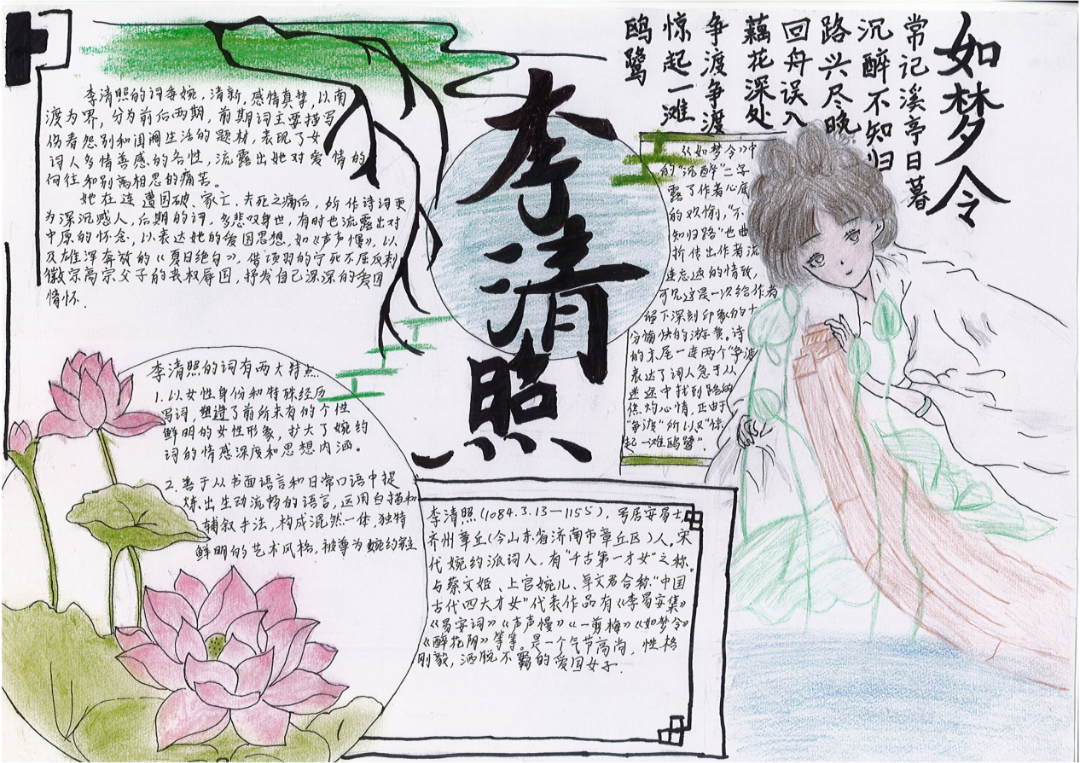 如梦令
常记溪亭日暮
沉醉不知归
路兴尽晚
回舟误入
藕花深处
争渡争渡
惊起一滩
鸥鹭
李清照
李清照的词委婉，清新，感情真挚，以南
渡为界，分为前后两期，前期词主要描写
伤春怨别和闺阁生活的题材，表现了女
词人多情善感的各性，流露出她对爱情的
向往和别离相思的痛苦。
她在连遭国破、家亡、夫死之痛后，所作诗词更
为深沉感人，后期的词，多悲叹身世，有时也流露出对
中原的怀念，以表达她的爱国思想，如《声声慢》，以
及雄浑奔放的《夏日绝句》，借项羽的宁死不屈反刺
徽宗高宗父子的丧权辱国，抒发自己深深的爱国
情怀.
《如梦令》中
的“沉醉”二字
露了作者心底
的欢愉，“不
知归路”也曲
折传出作者流
连忘返的情致，
可见这是一次给作者
留下深刻印象的十
分愉快的游赏。诗
的末尾一连两个“争渡”
表达了词人急于从
迷途中找到路的
焦灼心情，正由于
“争渡”所以又“惊
起一滩鸥鹭”.
李清照的词有两大特点
1.以女性身份和特殊经历
写词，塑造了前所未有的个性
鲜明的女性形象，扩大了婉约
词的情感深度和思想内涵。
2.善于从书面语言和日常口语中提
炼出生动流畅的语言，运用白描和
辅叙手法，构成浑然一体，独特
鲜明的艺术风格，被尊为婉约宗主
李清照(1084.3.13—1155)，号居安易士
齐州章丘(今山东省济南市章丘区)人，宋
代婉约派词人，有“千古第一才女”之称。
与蔡文姬、上官婉儿、卓文君合称“中国
古代四大才女”代表作品有《李易安集》
《易安词》《声声慢》《一剪梅》《如梦令》
《醉花阴》等等。是一个气节高尚，性格
刚毅，洒脱不羁的爱国女子.